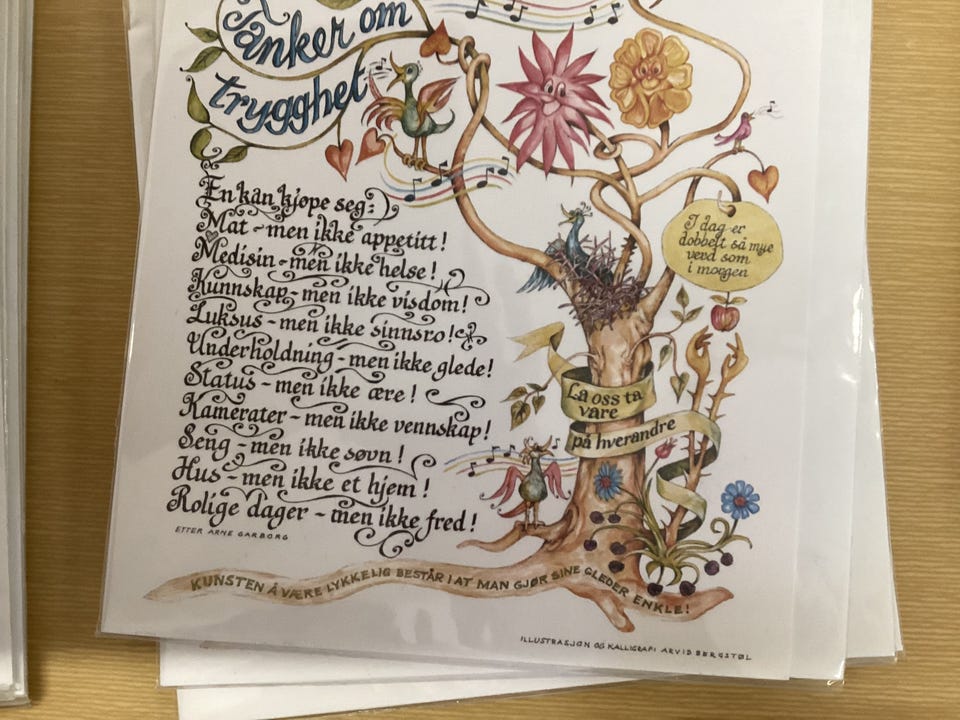 Tanker om
trygghet
En kan kjøpe seg:
Mat - men ikke appetitt!
Medisin - men ikke helse!
Kunnskap - men ikke visdom!
Luksus - men ikke sinnsro!
Underholdning - men ikke glede!
Status - men ikke ære!
Kamerater - men ikke vennskap!
Seng - men ikke søvn!
Hus - men ikke et hjem!
Rolige dager - men ikke fred!
EFTER ARNE GARBORG
I dag er
dobbelt så mye
verd som
i morgen
La oss ta
vare
på hverandre
KUNSTEN Å VÆRE LYKKELIG BESTÅR I AT MAN GJØR SINE GLEDER ENKLE!
ILLUSTRASJON OG KALLIGRAFI ARVID BERGSTØL